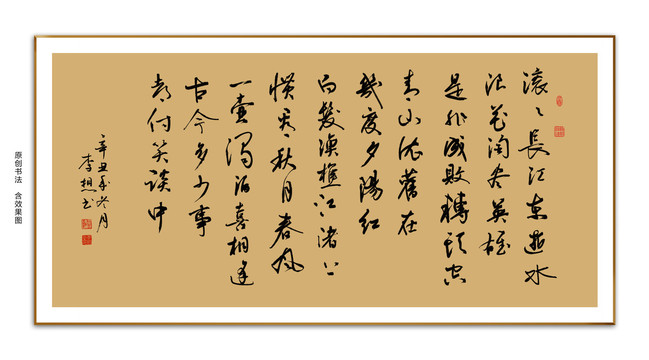 滚〻長江东逝水
浪花淘尽英雄
是非成敗轉头空
青山依舊在
幾度夕陽红
白髮渔樵江渚上
惯看秋月春风
一壶濁酒喜相逢
古今多少事
都付笑谈中
辛丑年冬月
李想书
原创书法 含效果图